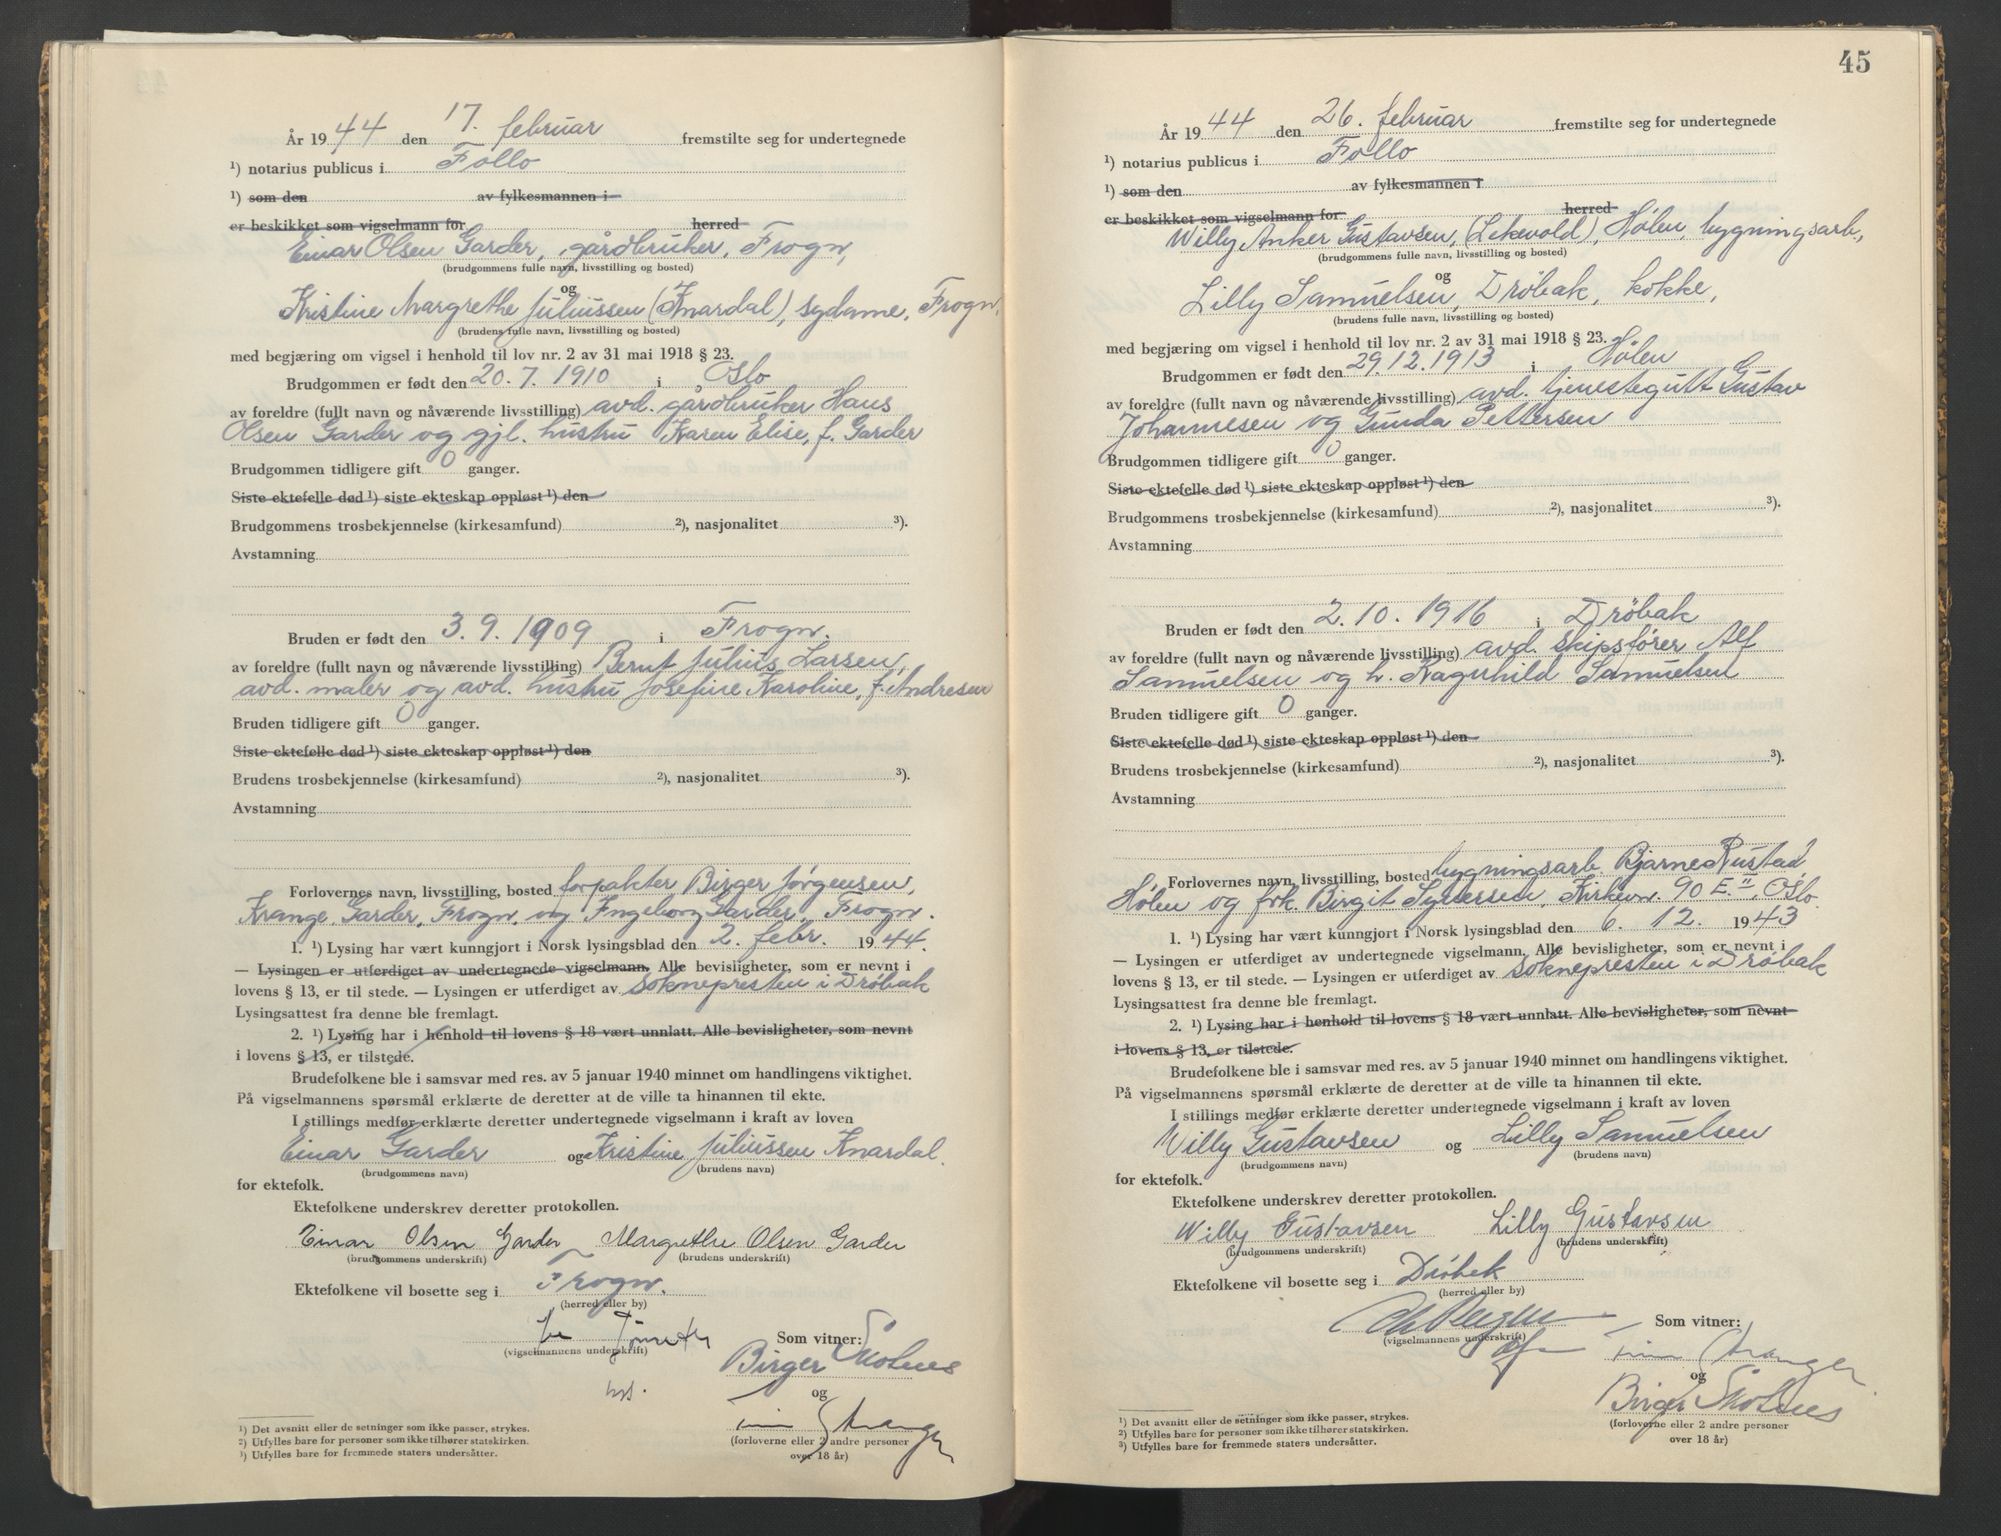 År 1944 den 17. februar fremstilte seg for undertegnede
¹) notarius publicus i Follo
¹) som den av fylkesmannen i
er beskikket som vigselmann for herred
Einar Olsen Garder, gårdbruker, Frogn,
(brudgommens fulle navn, livsstilling og bosted)
og
Kristine Margrethe Juliussen (Knardal), sydame, Frogn.
(brudens fulle navn, livsstilling og bosted)
med begjæring om vigsel i henhold til lov nr. 2 av 31 mai 1918 § 23.
Brudgommen er født den 20. 7. 1910 i Oslo
av foreldre (fullt navn og nåværende livsstilling) avd. gårdbruker Hans
Olsen Garder og gjl. hustru Karen Elise, f. Garder
Brudgommen tidligere gift 0 ganger.
Siste ektefelle død ¹) siste ekteskap oppløst ¹) den
Brudgommens trosbekjennelse (kirkesamfund) ²), nasjonalitet ³).
Avstamning
Bruden er født den 3. 9. 1909 i Frogn.
av foreldre (fullt navn og nåværende livsstilling) Bernt Julius Larsen,
avd. maler og avd. hustru Josefine Karoline, f. Andresen
Bruden tidligere gift 0 ganger.
Siste ektefelle død ¹) siste ekteskap oppløst ¹) den
Brudens trosbekjennelse (kirkesamfund) ²), nasjonalitet ³).
Avstamning
Forlovernes navn, livsstilling, bosted forpakter Birger Jørgensen,
Krange, Garder, Frogn, og Ingeborg Garder, Frogn.
1. ¹) Lysing har vært kunngjort i Norsk lysingsblad den 2. febr. 1944.
— Lysingen er utferdiget av undertegnede vigselmann. Alle bevisligheter, som er nevnt i
lovens § 13, er til stede. — Lysingen er utferdiget av soknepresten i Drøbak
Lysingsattest fra denne ble fremlagt.
2. ¹) Lysing har i henhold til lovens § 18 vært unnlatt. Alle bevisligheter, som nevnt
i lovens § 13, er tilstede.
Brudefolkene ble i samsvar med res. av 5 januar 1940 minnet om handlingens viktighet.
På vigselmannens spørsmål erklærte de deretter at de ville ta hinannen til ekte.
I stillings medfør erklærte deretter undertegnede vigselmann i kraft av loven
Einar Garder og Kristine Juliussen Knardal.
(brudgommens navn) (brudens navn)
for ektefolk.
Ektefolkene underskrev deretter protokollen.
Einar Olsen Garder Margrethe Olsen Garder
(brudgommens underskrift) (brudens underskrift)
Ektefolkene vil bosette seg i Frogn.
(herred eller by)
Som vitner:
(vigselmannens underskrift)
Birger Skolnes
og
(forloverne eller 2 andre personer
over 18 år)
¹) Det avsnitt eller de setninger som ikke passer, strykes.
²) Utfylles bare for personer som ikke tilhører statskirken.
³) Utfylles bare for fremmede staters undersåtter.
45
År 1944 den 26. februar fremstilte seg for undertegnede
¹) notarius publicus i Follo
¹) som den av fylkesmannen i
er beskikket som vigselmann for herred
Willy Anker Gustavsen, (Lekevold), Hølen, bygningsarb.,
(brudgommens fulle navn, livsstilling og bosted)
og
Lilly Samuelsen, Drøbak, kokke,
(brudens fulle navn, livsstilling og bosted)
med begjæring om vigsel i henhold til lov nr. 2 av 31 mai 1918 § 23.
Brudgommen er født den 29. 12. 1913 i Hølen
av foreldre (fullt navn og nåværende livsstilling) avd. tjenestegutt Gustav
Johannesen og Gunda Pettersen
Brudgommen tidligere gift 0 ganger.
Siste ektefelle død ¹) siste ekteskap oppløst ¹) den
Brudgommens trosbekjennelse (kirkesamfund) ²), nasjonalitet ³).
Avstamning
Bruden er født den 2. 10. 1916 i Drøbak
av foreldre (fullt navn og nåværende livsstilling) avd. skipsfører Alf
Samuelsen og h. Ragnhild Samuelsen
Bruden tidligere gift 0 ganger.
Siste ektefelle død ¹) siste ekteskap oppløst ¹) den
Brudens trosbekjennelse (kirkesamfund) ²), nasjonalitet ³).
Avstamning
Forlovernes navn, livsstilling, bosted bygningsarb. Bjarne Rustad
Hølen og frk. Birgit Syversen, Kirkevn. 90 E. II, Oslo.
1. ¹) Lysing har vært kunngjort i Norsk lysingsblad den 6. 12. 1943
— Lysingen er utferdiget av undertegnede vigselmann. Alle bevisligheter, som er nevnt i
lovens § 13, er til stede. — Lysingen er utferdiget av soknepresten i Drøbak
Lysingsattest fra denne ble fremlagt.
2. ¹) Lysing har i henhold til lovens § 18 vært unnlatt. Alle bevisligheter, som nevnt
i lovens § 13, er tilstede.
Brudefolkene ble i samsvar med res. av 5 januar 1940 minnet om handlingens viktighet.
På vigselmannens spørsmål erklærte de deretter at de ville ta hinannen til ekte.
I stillings medfør erklærte deretter undertegnede vigselmann i kraft av loven
Willy Gustavsen og Lilly Samuelsen
(brudgommens navn) (brudens navn)
for ektefolk.
Ektefolkene underskrev deretter protokollen.
Willy Gustavsen Lilly Gustavsen
(brudgommens underskrift) (brudens underskrift)
Ektefolkene vil bosette seg i Drøbak
(herred eller by)
Som vitner:
(vigselmannens underskrift)
og
Birger Skolnes
(forloverne eller 2 andre personer
over 18 år)
¹) Det avsnitt eller de setninger som ikke passer, strykes.
²) Utfylles bare for personer som ikke tilhører statskirken.
³) Utfylles bare for fremmede staters undersåtter.